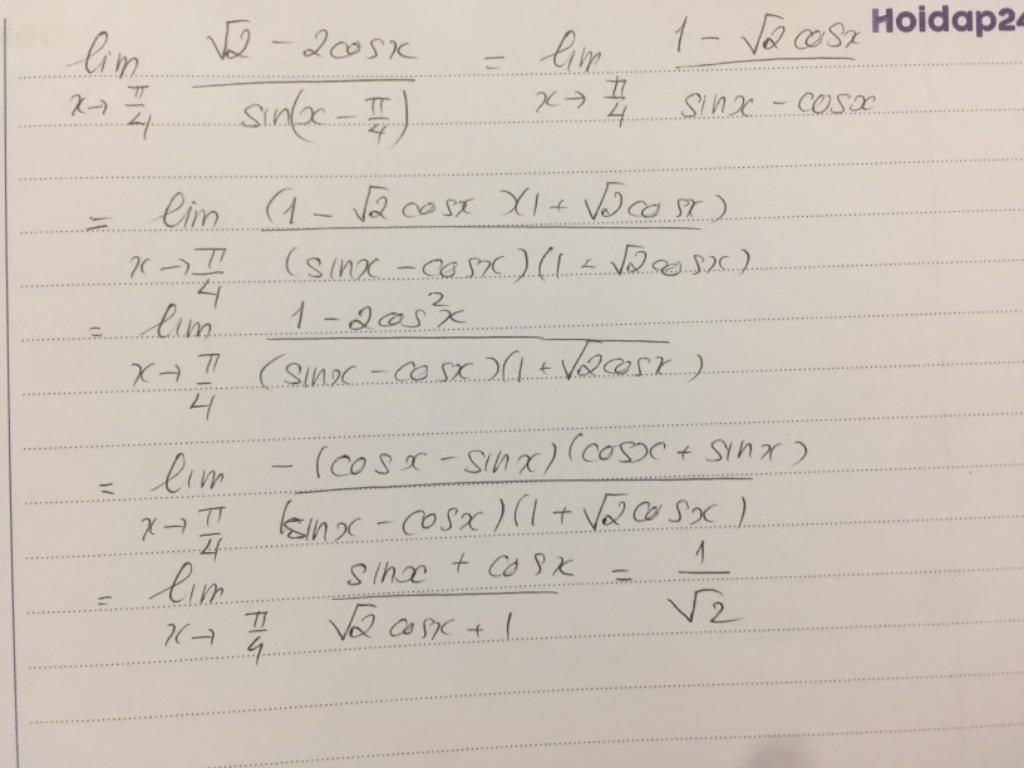 Hoidap24
lim x→π/4 (√2 - 2cosx)/(sin(x - π/4)) = lim x→π/4 (1 - √2 cosx)/(sinx - cosx)
= lim x→π/4 ((1 - √2 cosx)(1 + √2 cosx))/((sinx - cosx)(1 + √2 cosx))
= lim x→π/4 (1 - 2cos²x)/((sinx - cosx)(1 + √2cosx))
= lim x→π/4 (-(cosx - sinx)(cosx + sinx))/((sinx - cosx)(1 + √2 cosx))
= lim x→π/4 (sinx + cosx)/(√2 cosx + 1) = 1/√2